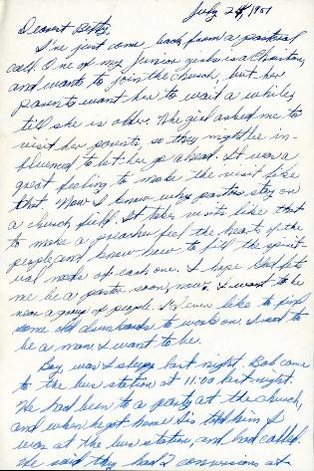 July 24, 1951
Dearest Betty,
I've just come back from a pastoral
call. One of my Junior girls is a Christian,
and wants to join the church, but her
parents want her to wait a while,
till she is older. The girl asked me to
visit her parents, so they might be in-
fluenced to let her go ahead. It was a
great feeling to make the visit like
that. Now I know why pastors stay on
a church field. It takes visits like that
to make a preacher feel the hearts of the
people, and know how to fill the spirit-
ual needs of each one. I hope God lets
me be a pastor soon, now. I want to be
near a group of people. I'd even like to find
some old drunkards to work on. I need to
be a man I want to be.
Boy, was I sleepy last night. Bob came
to the bus station at 11:00 last night.
He had been to a party at the church,
and when he got home Sis told him I
was at the bus station, and had called.
He said they had 2 conversions at